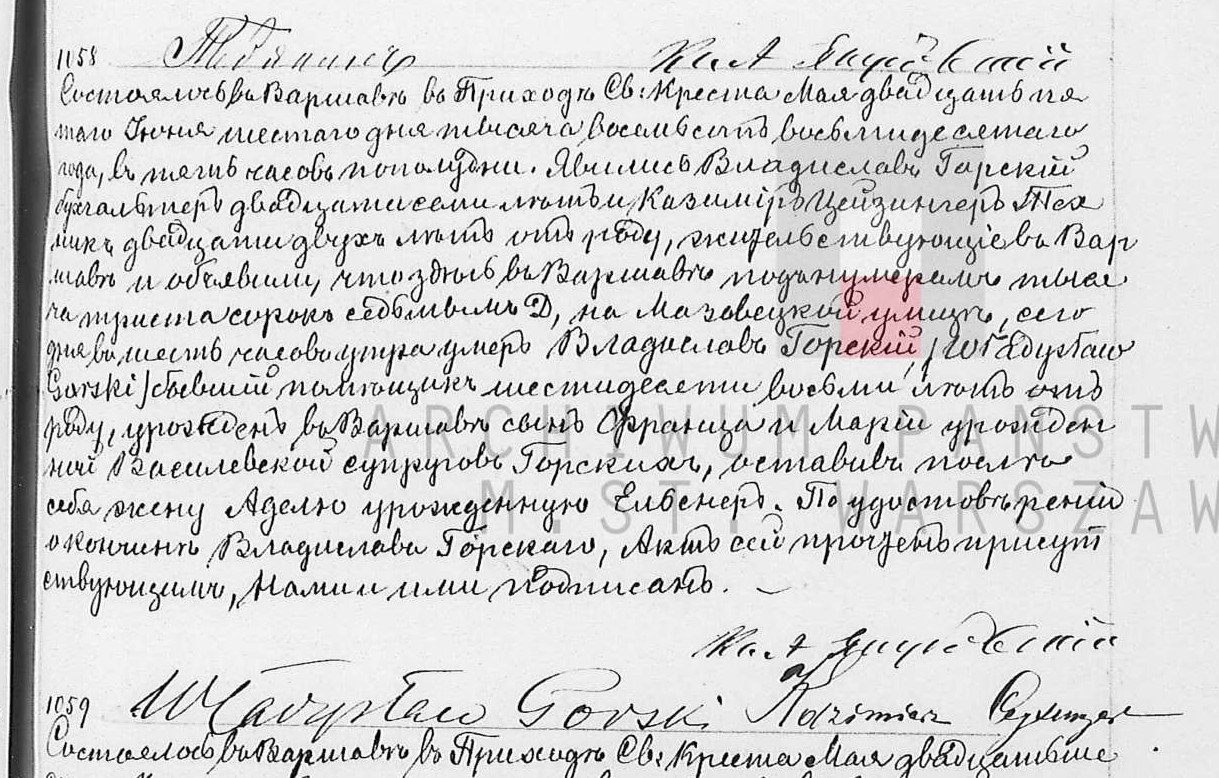 1058
Состоялось въ Варшавѣ въ Приходѣ Св: Креста Мая двадцать пя
таго Іюня шестаго дня тысяча восемьсотъ восьмидесятаго
года, въ пять часовъ пополудни. Явились Владиславъ Горскій
бухгальтеръ двадцати семи лѣтъ и Казиміръ Цейзингеръ Тех
никъ двадцати двухъ лѣтъ отъ роду, жительствующіе въ Вар
шавѣ и объявили, что здѣсь въ Варшавѣ подъ нумеромъ тыся
ча триста сорокъ седьмымъ Д, на Мазовецкой улицѣ, сего
дня въ шесть часовъ утра умеръ Владиславъ Горскій, /Władysław
Gorski/ бывшій помѣщикъ шестидесяти восьми лѣтъ отъ
роду, урожденъ въ Варшавѣ сынъ Франца и Маріи урожден
ной Василевской супруговъ Горскихъ, оставивъ послѣ
себя жену Аделю урожденную Ельбенеръ. По удостовѣреніи
о кончинѣ Владислава Горскаго, Актъ сей прочтенъ присут
ствующимъ, Нами и ими подписанъ. —
Władysław Gorski Kazimierz
1059
Состоялось въ Варшавѣ въ Приходѣ Св: Креста Мая двадцать ше
ARCHIWUM PAŃSTW
M.ST. WARSZAW